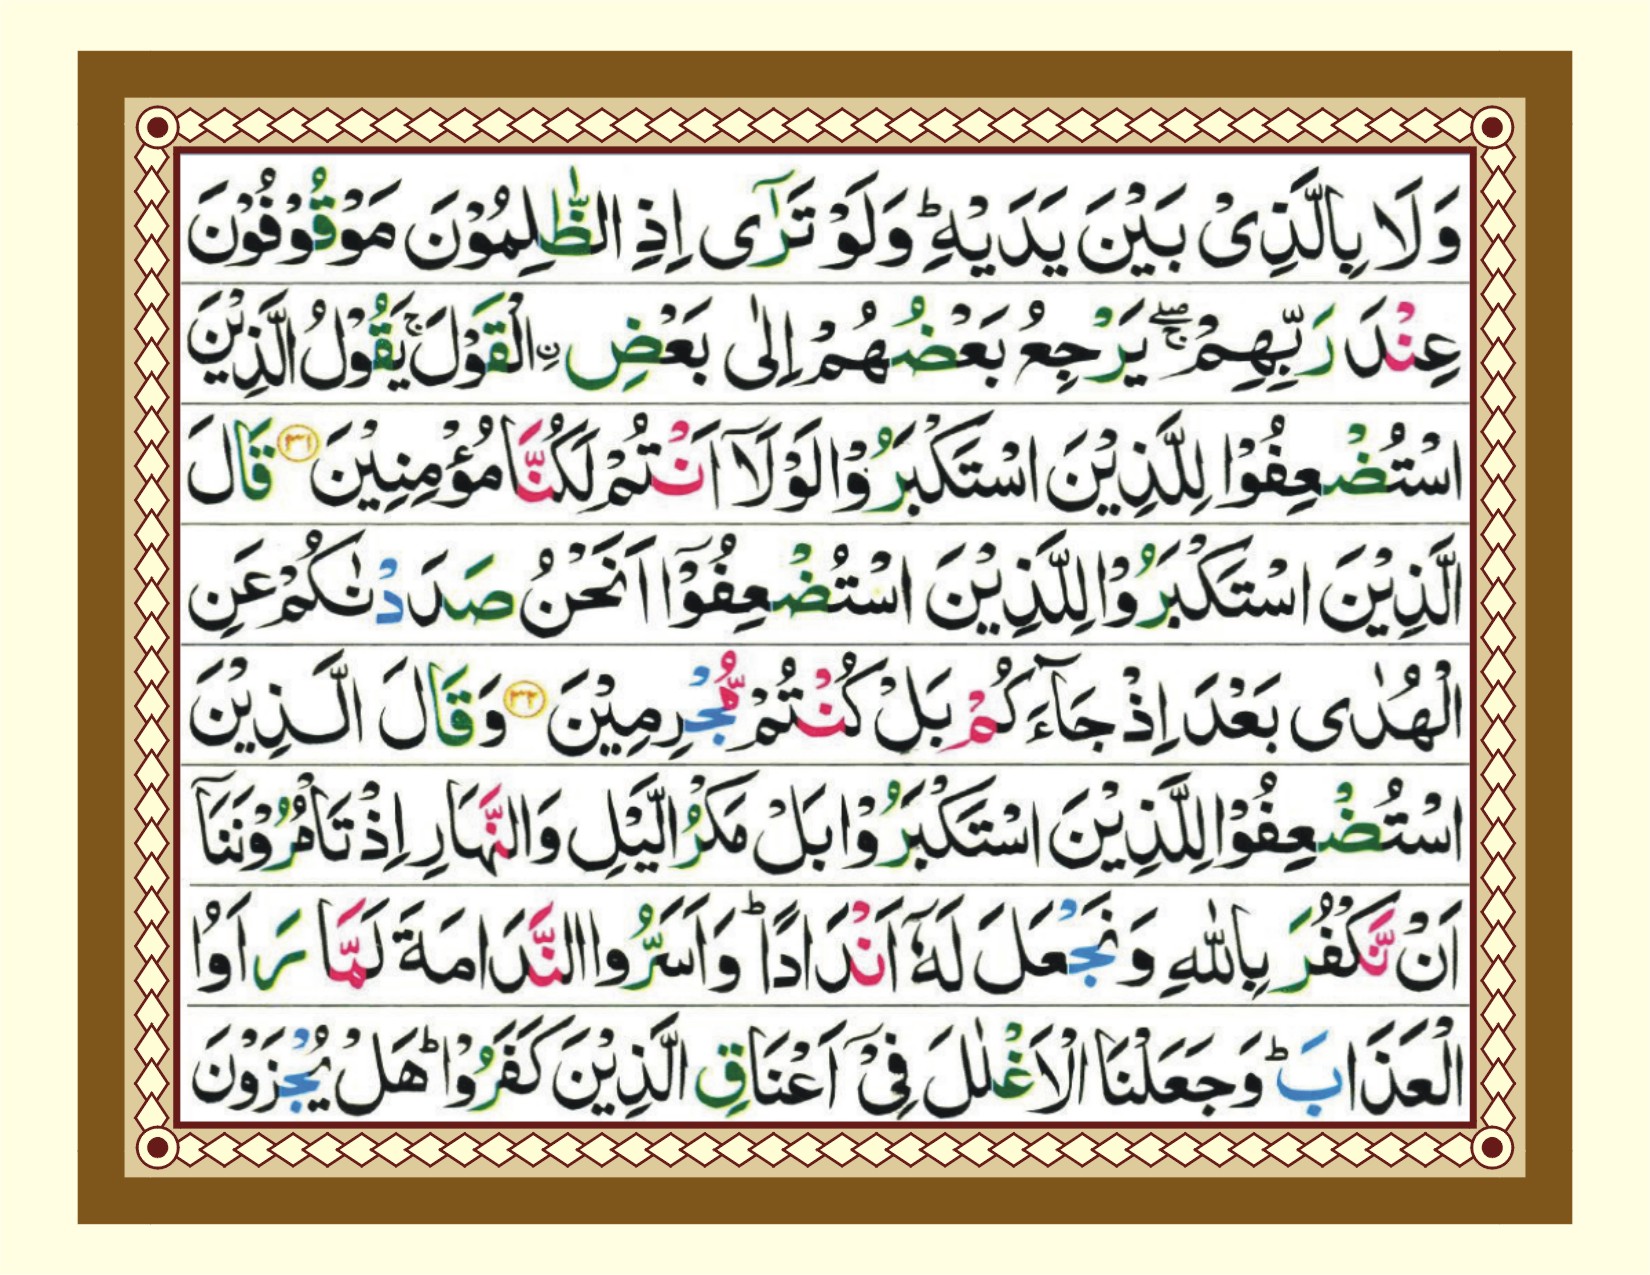 وَلَا بِالَّذِیْ بَیْنَ یَدَیْهِ ؕ وَلَوْ تَرٰۤی اِذِ الظّٰلِمُوْنَ مَوْقُوْفُوْنَ
عِنْدَ رَبِّهِمْ ۖۚ یَرْجِعُ بَعْضُهُمْ اِلٰی بَعْضِ ن ِالْقَوْلَ ۚ یَقُوْلُ الَّذِیْنَ
اسْتُضْعِفُوْا لِلَّذِیْنَ اسْتَكْبَرُوْا لَوْلَاۤ اَنْتُمْ لَكُنَّا مُؤْمِنِیْنَ ۳۱ قَالَ
الَّذِیْنَ اسْتَكْبَرُوْا لِلَّذِیْنَ اسْتُضْعِفُوْۤا اَنَحْنُ صَدَدْنٰكُمْ عَنِ
الْهُدٰی بَعْدَ اِذْ جَآءَكُمْ بَلْ كُنْتُمْ مُّجْرِمِیْنَ ۳۲ وَقَالَ الَّذِیْنَ
اسْتُضْعِفُوْا لِلَّذِیْنَ اسْتَكْبَرُوْا بَلْ مَكْرُ الَّیْلِ وَالنَّهَارِ اِذْ تَاْمُرُوْنَنَاۤ
اَنْ نَّكْفُرَ بِاللّٰهِ وَنَجْعَلَ لَهٗۤ اَنْدَادًا ؕ وَاَسَرُّوا النَّدَامَةَ لَمَّا رَاَوُا
الْعَذَابَ ؕ وَجَعَلْنَا الْاَغْلٰلَ فِیْۤ اَعْنَاقِ الَّذِیْنَ كَفَرُوْا ؕ هَلْ یُجْزَوْنَ